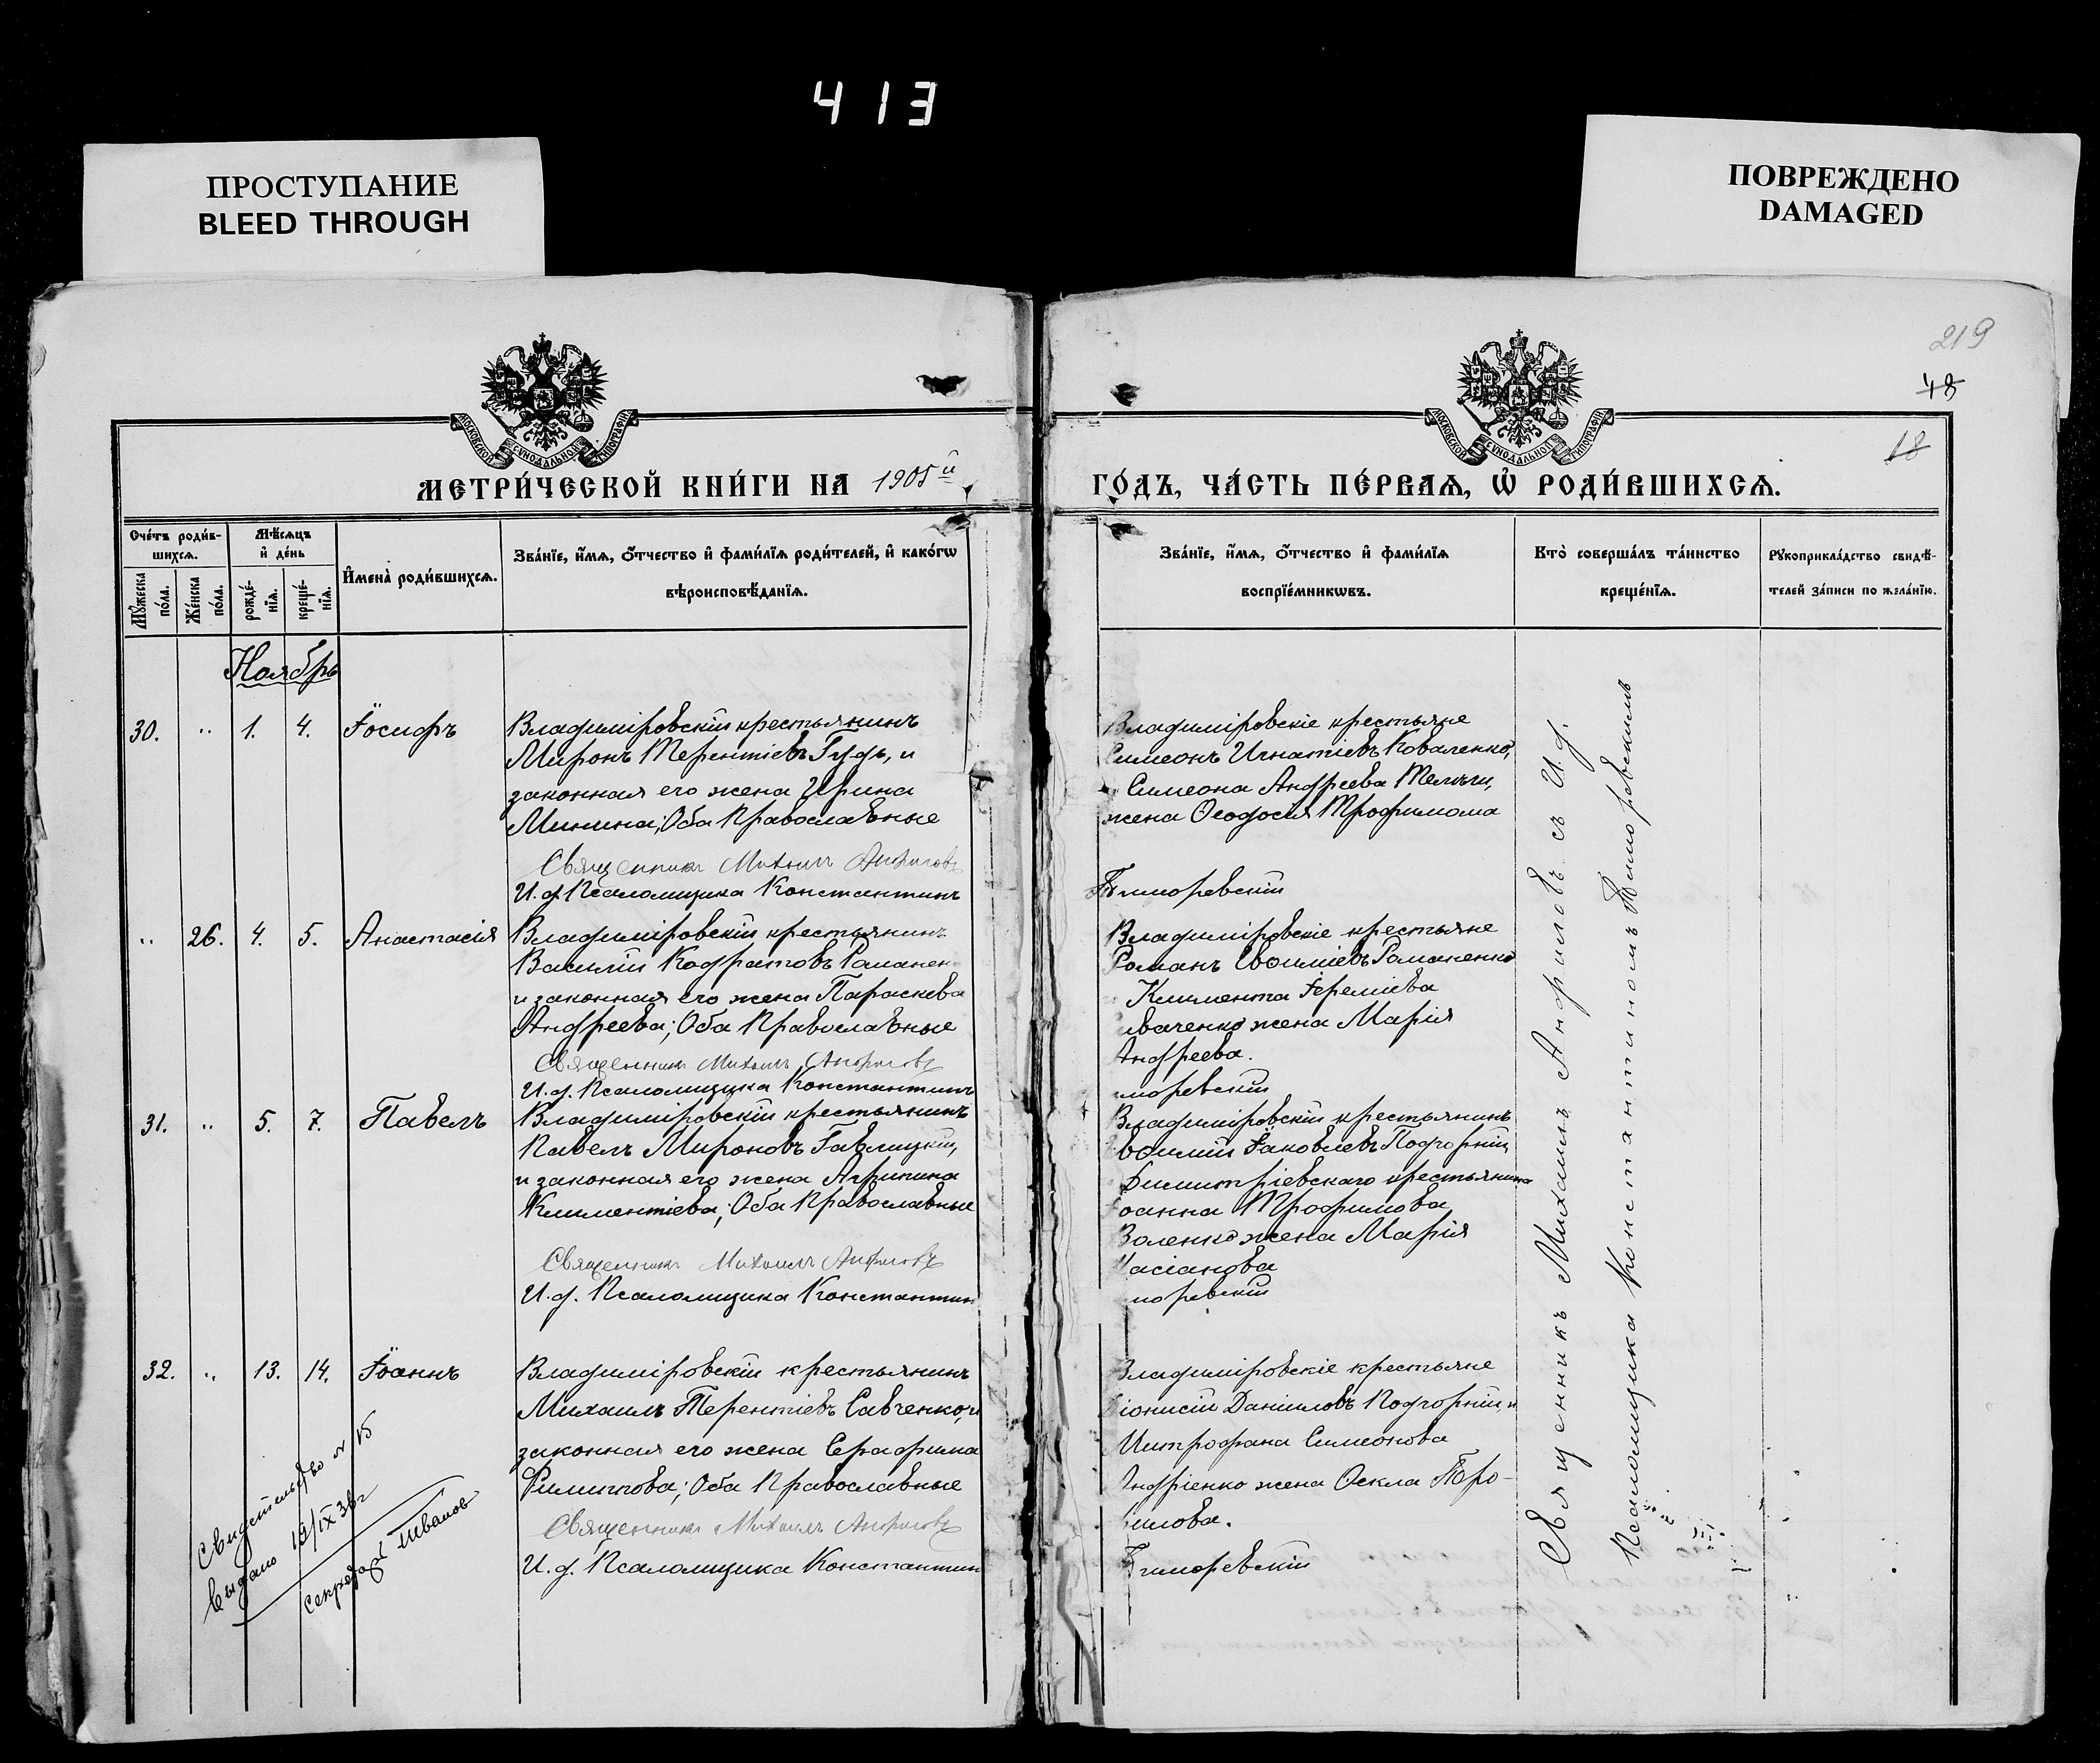 413
ПРОСТУПАНИЕ
BLEED THROUGH
ПОВРЕЖДЕНО
DAMAGED
219
48
18
МОСКОВСКОЙ СѴНОДАЛЬНОЙ ТИПОГРАФІИ
МОСКОВСКОЙ СѴНОДАЛЬНОЙ ТИПОГРАФІИ
МЕТРИ́ЧЕСКОЙ КНИ́ГИ НА 1905й
ГО́ДЪ, ЧА́СТЬ ПЕ́РВАѦ, Ѡ҆ РОДИ́ВШИХСѦ.
Сче́тъ роди́в-
шихсѧ.
Мꙋ́жеска по́ла.
Же́нска по́ла.
Мѣ́сѧцъ
и҆ де́нь
рожде́-
нїѧ.
креще́-
нїѧ.
И҆мена̀ роди́вшихсѧ.
Зва́нїе, и҆́мѧ, ѻ҆́тчество и҆ фами́лїѧ роди́телей, и҆ како́гѡ
вѣроисповѣ́данїѧ.
Зва́нїе, и҆́мѧ, ѻ҆́тчество и҆ фами́лїѧ
воспрїе́мникѡвъ.
Кто̀ соверша́лъ та́инство
креще́нїѧ.
Рꙋкоприкла́дство свидѣ́-
телей за́писи по жела́нїю.
Ноябрь
30. " 1. 4. Іосифъ
Владиміровскій крестьянинъ
Миронъ Терентіевъ Гудь, и
законная его жена Ирина
Минина; Оба Православные
Священникъ Михаилъ Анфиловъ
И. д. Псаломщика Константинъ
Владиміровскіе крестьяне
Симеонъ Игнатіевъ Коваленко,
Симеона Андреева
жена Ѳеодосія Трофимома
Тиморевскій
" 26. 4. 5. Анастасія
Владиміровскій крестьянинъ
Василій Кодратовъ Романен
и законная его жена Параскева
Андреева; Оба Православные
Священникъ Михаилъ Анфиловъ
И. д. Псаломщика Константинъ
Владиміровскіе крестьяне
Романъ Евѳиміевъ Романенко
Климента Іереміева
иваченко жена Марія
Андреева.
моревскій
31. " 5. 7. Павелъ
Владиміровскій крестьянинъ
Павелъ Мироновъ Гавлицкій,
и законная его жена Агрипина
Климентіева; Оба Православные
Священникъ Михаилъ Анфиловъ
И. д. Псаломщика Константин
Владиміровскій крестьянинъ
вѳимій Іаковлевъ Подгорній,
Димитріевскаго крестьянина
Іоанна Трофимова
Воленко жена Марія
Касіанова
моревскій
32. " 13. 14. Іоаннъ
Владиміровскій крестьянинъ
Михаилъ Терентіевъ Савченко, и
законная его жена Серафима
Филиппова; Оба Православные
Священникъ Михаилъ Анфиловъ
И. д. Псаломщика Константин
Владиміровскіе крестьяне
Діонисій Даніиловъ Подгорній, и
Митрофана Симеонова
Андріенко жена Ѳекла Тро-
имова.
Тиморевскій
Священникъ Михаилъ Анфиловъ съ И. д.
Псаломщика Константиномъ Тиморевскимъ
Свидетельство № 15
выдано 19/IX 36г
секретарь Иванов